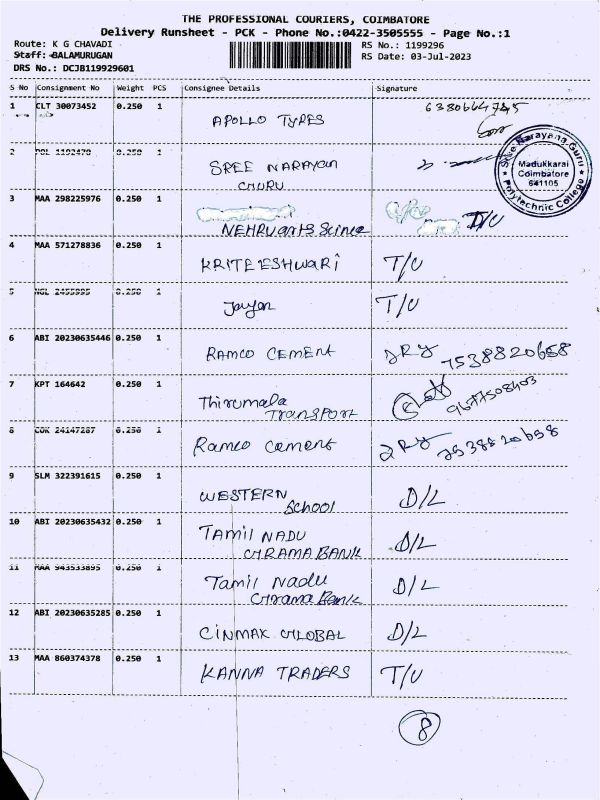 THE PROFESSIONAL COURIERS, COIMBATORE
Delivery Runsheet - PCK - Phone No.:0422-3505555 - Page No.:1
Route: K G CHAVADI
RS No.: 1199296
Staff: BALAMURUGAN
RS Date: 03-Jul-2023
DRS No.: DCJB119929601
S No Consignment No Weight PCS Consignee Details Signature
1 CLT 30073452 0.250 1 6380664745
APOLLO TYRES
2 0.250 1
SREE NARAYAN
GURU
Sree Narayana Guru
Madukkarai
Coimbatore
641105
Polytechnic College
3 MAA 298225976 0.250 1
NEHRU arts Science D/L
4 MAA 571278836 0.250 1
KRITEESHWARI T/U
5 0.250 1
T/U
6 ABI 20230635446 0.250 1
RAMCO CEMENT 7538820658
7 KPT 164642 0.250 1
Thirumala 9677508403
TRANSPORT
8 COK 24147287 0.250 1
Ramco Cement 7538820658
9 SLM 322391615 0.250 1
WESTERN D/L
School
10 ABI 20230635432 0.250 1
TAMIL NADU D/L
GRAMA BANK
11 MAA 943533895 0.250 1
Tamil Nadu D/L
Grama Bank
12 ABI 20230635285 0.250 1
CINMAK GLOBAL D/L
13 MAA 860374378 0.250 1
KANNA TRADERS T/U
8